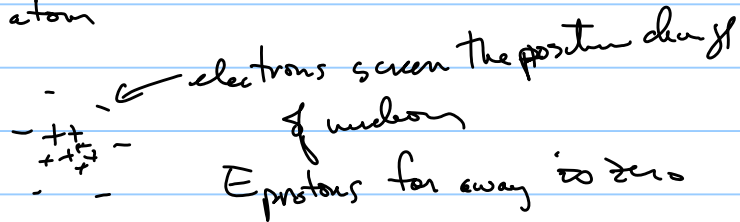 atom
electrons screen the positive charge
of nucleons
E protons far away is zero